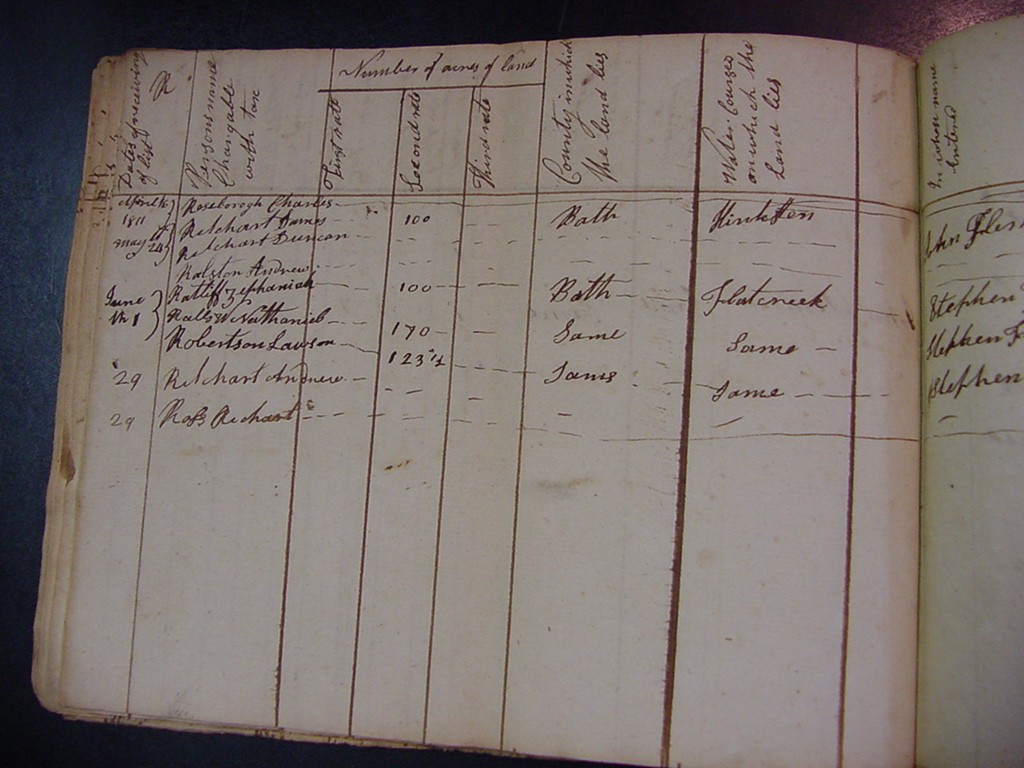 Dates of receiving of list
R
Persons name Chargable with tax
Number of acres of land
First rate
Second rate
Third rate
County in which the land lies
Water Courses on which the land lies
In whose name Entered
April 16 Roseborogh Charles
1811 Relchart James 100 Bath Hinksten
May 24 Relchart Duncan
Ralston Andrew
June Ratliff Zephaniah 100 Bath Flatcreek Stephen
th 1 Ralls W Nathaniel
Robertson Lawson 170 Same Same Stephen
123 1/2 Same Same Stephen
29 Relchart Andrew
29 Ross Rechart